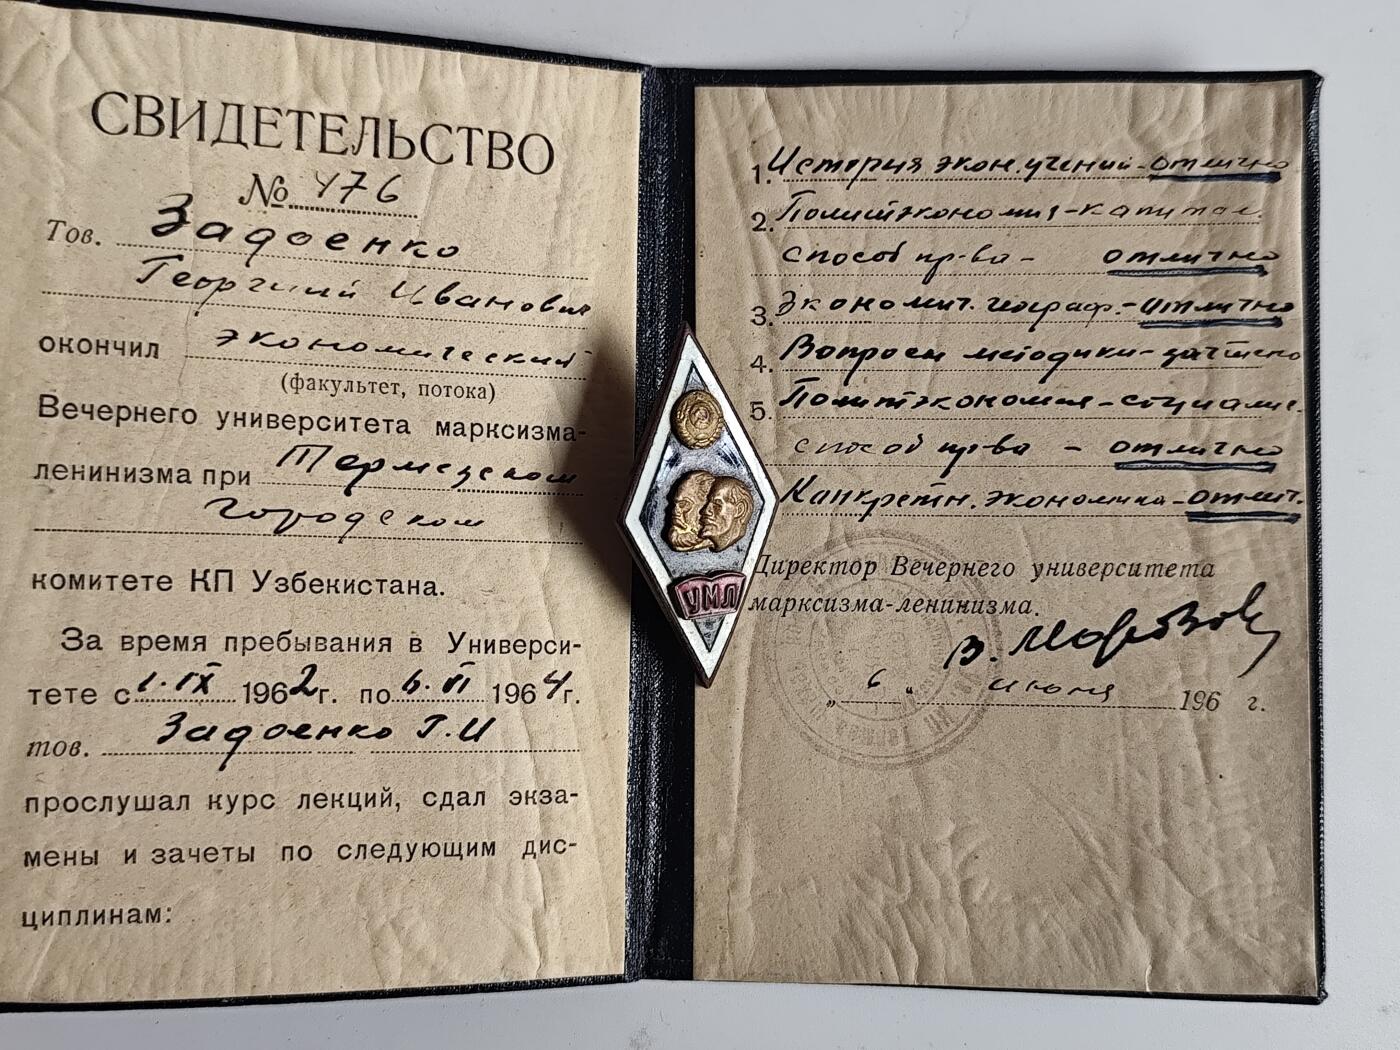 СВИДЕТЕЛЬСТВО
№ 476
Тов. Задоенко
Георгий Иванович
окончил экономический
(факультет, потока)
Вечернего университета марксизма-
ленинизма при Термезском
Городском
комитете КП Узбекистана.
За время пребывания в Универси-
тете с 1.IX 1962г. по 6.VI 1964г.
тов. Задоенко Г.И
прослушал курс лекций, сдал экза-
мены и зачеты по следующим дис-
циплинам:
УМЛ
1. История экон. учений - отлично
2. Политэкономия - капитал.
способ пр-ва - отлично
3. Экономич. географ. - отлично
4. Вопросы методики - зачтено
5. Политэкономия - социалис.
способ пр-ва - отлично
Канкретн. экономика - отлич.
Директор Вечернего университета
марксизма-ленинизма.
В. Морозов
„6„ июня 196 г.